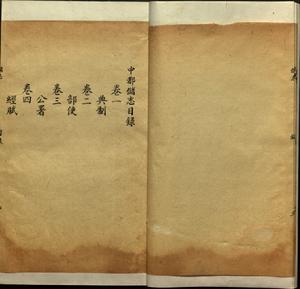 中都儲志目錄
卷一
典制
卷二
部使
卷三
公署
卷四
經賦